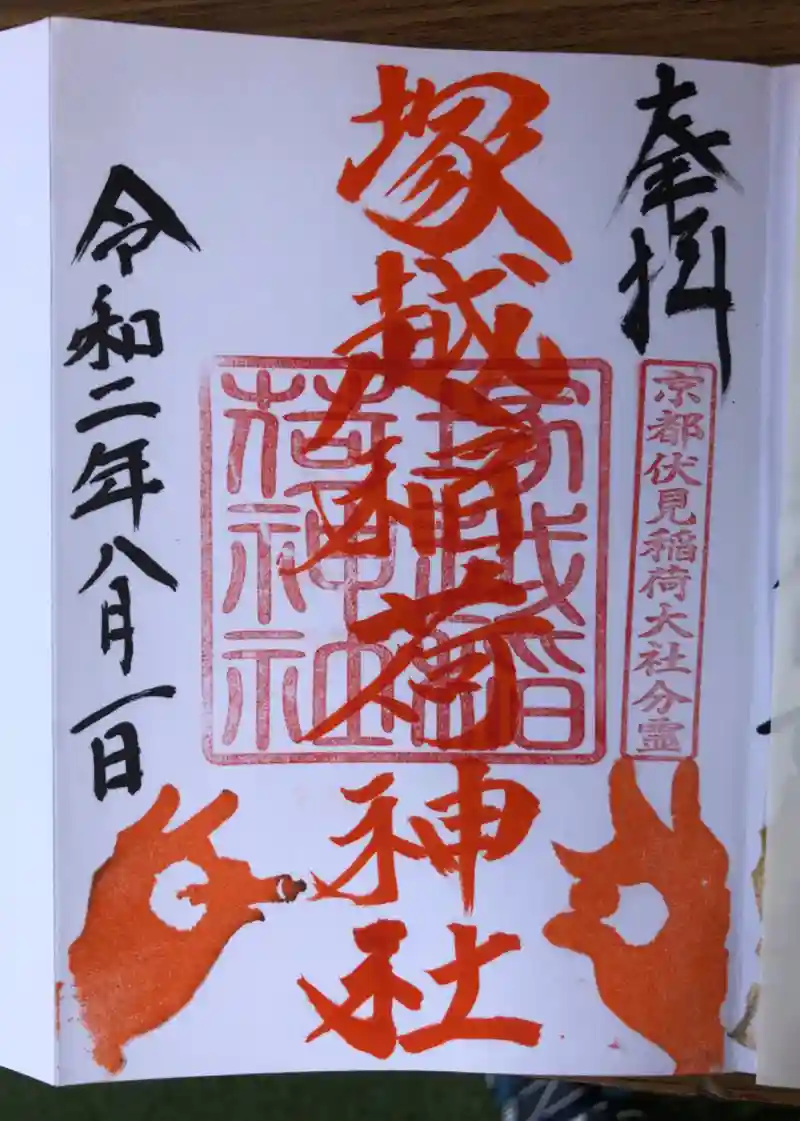 奉拝
京都伏見稲荷大社分霊
塚越稲荷神社
塚越稲
荷神社
令和二年八月一日